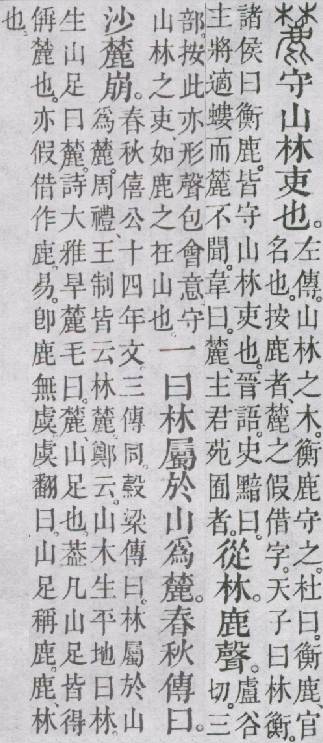 麓守山林吏也。
左傳。山林之木。衡鹿守之。杜曰。衡鹿、官
名也。按鹿者、麓之假借字。天子曰林衡。
諸侯曰衡鹿。皆守山林吏也。晉語。史黯曰。
主將適螻而麓不聞。韋曰。麓、主君苑囿者。
從林。鹿聲。
盧谷
切。三
部。按此亦形聲包會意。守
山林之吏、如鹿之在山也。
一曰林屬於山爲麓。春秋傳曰。
沙麓崩。
春秋僖公十四年文。三傳同。穀梁傳曰。林屬於山
爲麓。周禮、王制皆云林麓。鄭云。山木生平地曰林。
生山足曰麓。詩大雅旱麓毛曰。麓、山足也。葢凡山足皆得
偁麓也。亦假借作鹿。易。卽鹿無虞。虞翻曰。山足稱鹿。鹿、林
也。